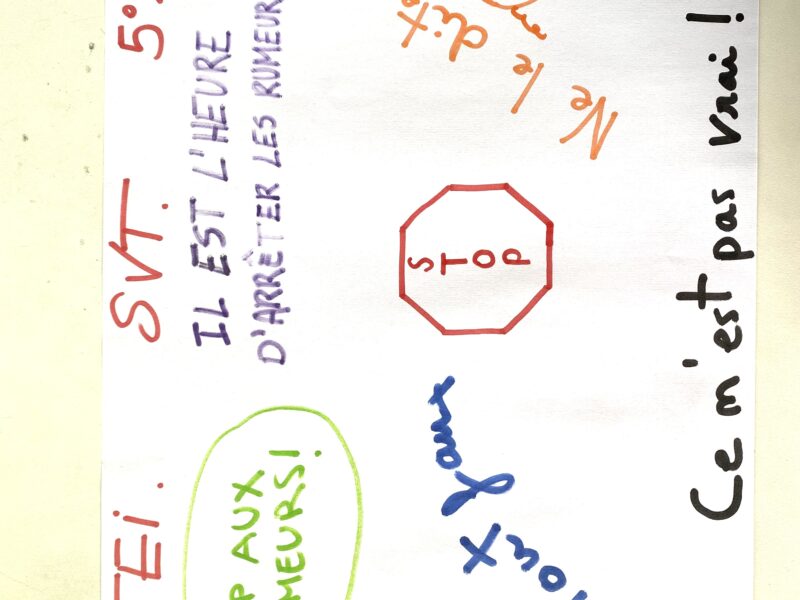 TEI. SVT. 5°
IL EST L'HEURE
D'ARRÊTER LES RUMEUR
P AUX
MEURS!
S
T
O
P
Ne le dit
out faux
Ce n'est pas vrai !